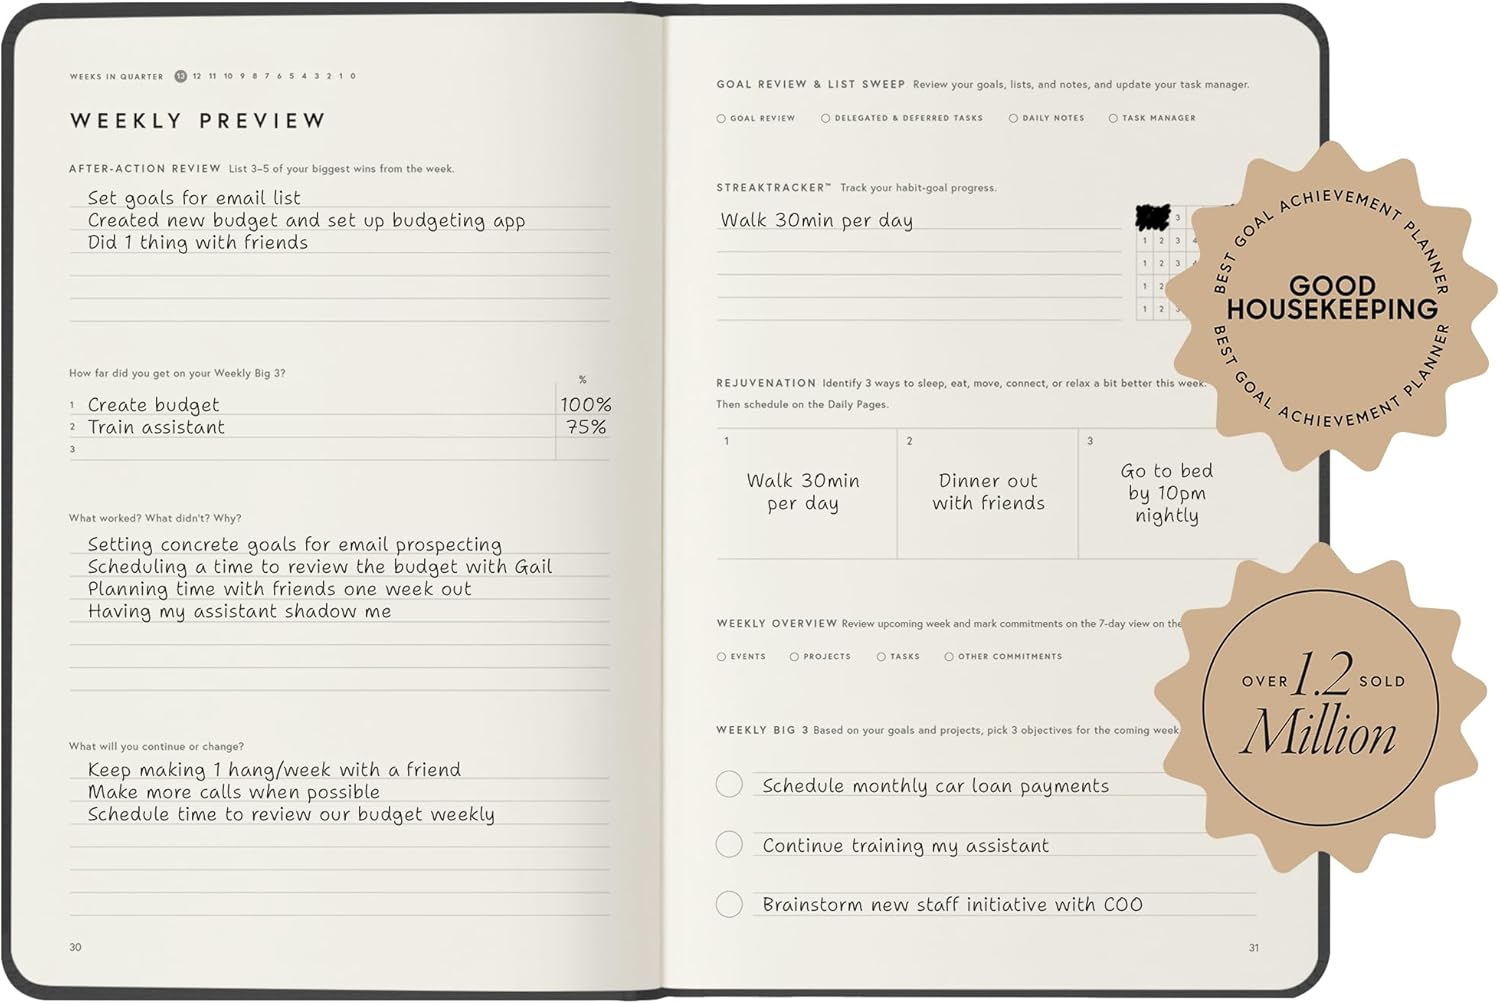 WEEKS IN QUARTER 13 12 11 10 9 8 7 6 5 4 3 2 1 0
WEEKLY PREVIEW
AFTER-ACTION REVIEW List 3–5 of your biggest wins from the week.
Set goals for email list
Created new budget and set up budgeting app
Did 1 thing with friends
How far did you get on your Weekly Big 3?
%
1 Create budget 100%
2 Train assistant 75%
3
What worked? What didn't? Why?
Setting concrete goals for email prospecting
Scheduling a time to review the budget with Gail
Planning time with friends one week out
Having my assistant shadow me
What will you continue or change?
Keep making 1 hang/week with a friend
Make more calls when possible
Schedule time to review our budget weekly
30
GOAL REVIEW & LIST SWEEP Review your goals, lists, and notes, and update your task manager.
GOAL REVIEW DELEGATED & DEFERRED TASKS DAILY NOTES TASK MANAGER
STREAKTRACKER™ Track your habit-goal progress.
Walk 30min per day 3
1 2 3 4
1 2 3 4
1 2
1 2 3
REJUVENATION Identify 3 ways to sleep, eat, move, connect, or relax a bit better this week.
Then schedule on the Daily Pages.
1 2 3
Walk 30min
per day
Dinner out
with friends
Go to bed
by 10pm
nightly
WEEKLY OVERVIEW Review upcoming week and mark commitments on the 7-day view on the
EVENTS PROJECTS TASKS OTHER COMMITMENTS
WEEKLY BIG 3 Based on your goals and projects, pick 3 objectives for the coming week
Schedule monthly car loan payments
Continue training my assistant
Brainstorm new staff initiative with COO
31
BEST GOAL ACHIEVEMENT PLANNER
GOOD
HOUSEKEEPING
BEST GOAL ACHIEVEMENT PLANNER
OVER 1.2 SOLD
Million